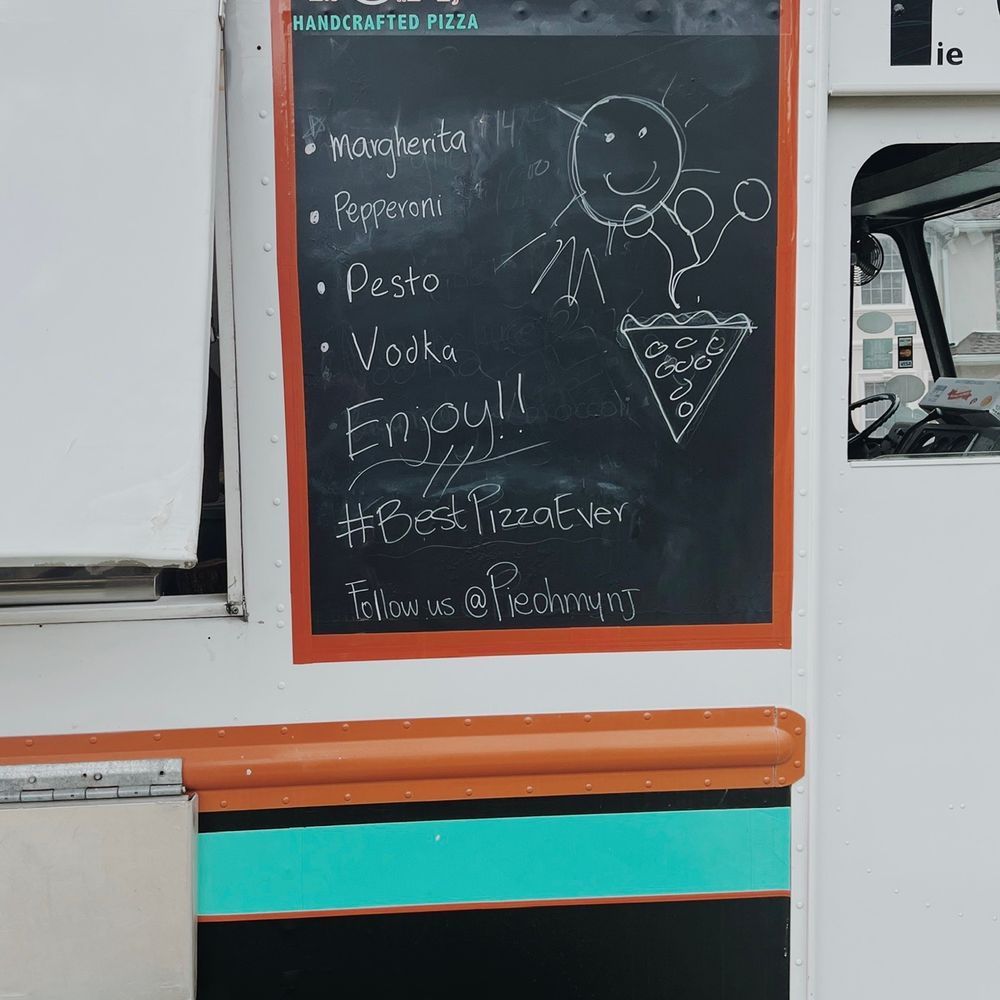 HANDCRAFTED PIZZA
ie
• Margherita
• Pepperoni
• Pesto
• Vodka
Enjoy!!
#BestPizzaEver
Follow us @Pieohmynj